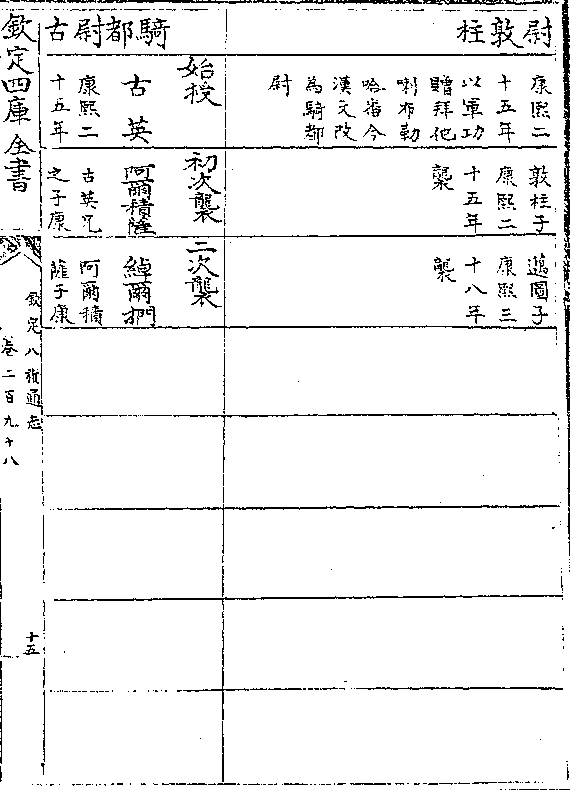 尉敦柱
康熙二
十五年
以軍功
贈拜他
喇布勒
哈番今
漢文改
為騎都
尉
敦柱子
康熙二
十五年
襲
圖子
康熙三
十八年
襲
騎都尉古
始授
古英
康熙二
十五年
初次襲
阿爾積薩
古英兄
之子康
二次襲
綽爾捫
阿爾積
薩子康
欽定四庫全書
欽定八旗通志
卷二百九十八
十五